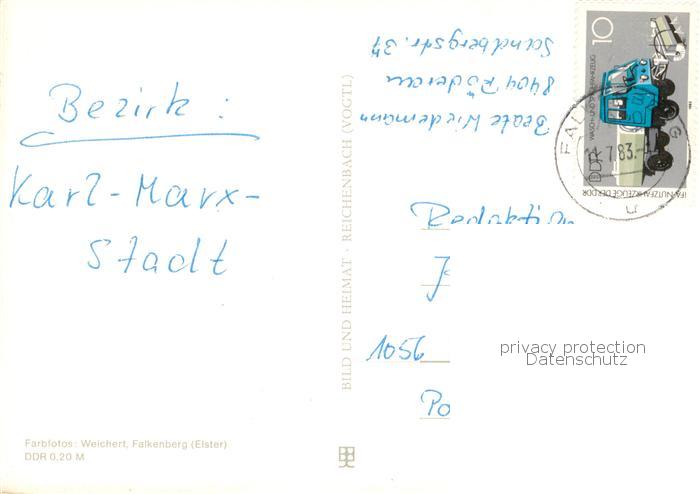 Bezirk:
Karl-Marx-
Stadt
Farbfotos: Weichert, Falkenberg (Elster)
DDR 0,20 M
BILD UND HEIMAT · REICHENBACH (VOGTL)
Beate Wiedemann
8404 Röderau
Sandbergstr. 37
10
WASCH- UND SPRÜHFAHRZEUG
IFA-NUTZFAHRZEUGE DER DDR
DDR
7.83.
1056
Po
privacy protection
Datenschutz